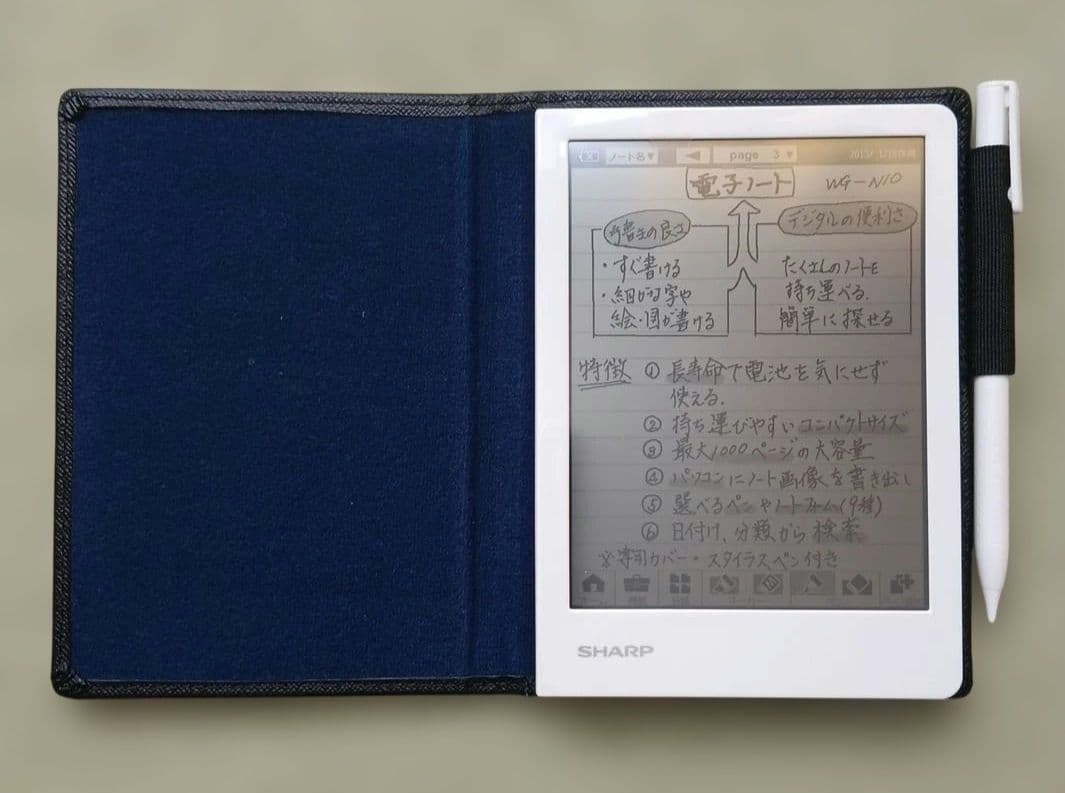 ノート名▼ ◀ page 3 ▼
電子ノート WG-N10
手書きの良さ
・すぐ書ける
・細かな字や
絵・図が書ける
デジタルの便利さ
たくさんのノートを
持ち運べる.
簡単に探せる
特徴 ① 長寿命で電池を気にせず
使える.
② 持ち運びやすいコンパクトサイズ
③ 最大1000ページの大容量
④ パソコンにノート画像を書き出し
⑤ 選べるペンやノートフォーム(9種)
⑥ 日付け、分類から検索
※専用カバー・スタイラスペン付き
SHARP